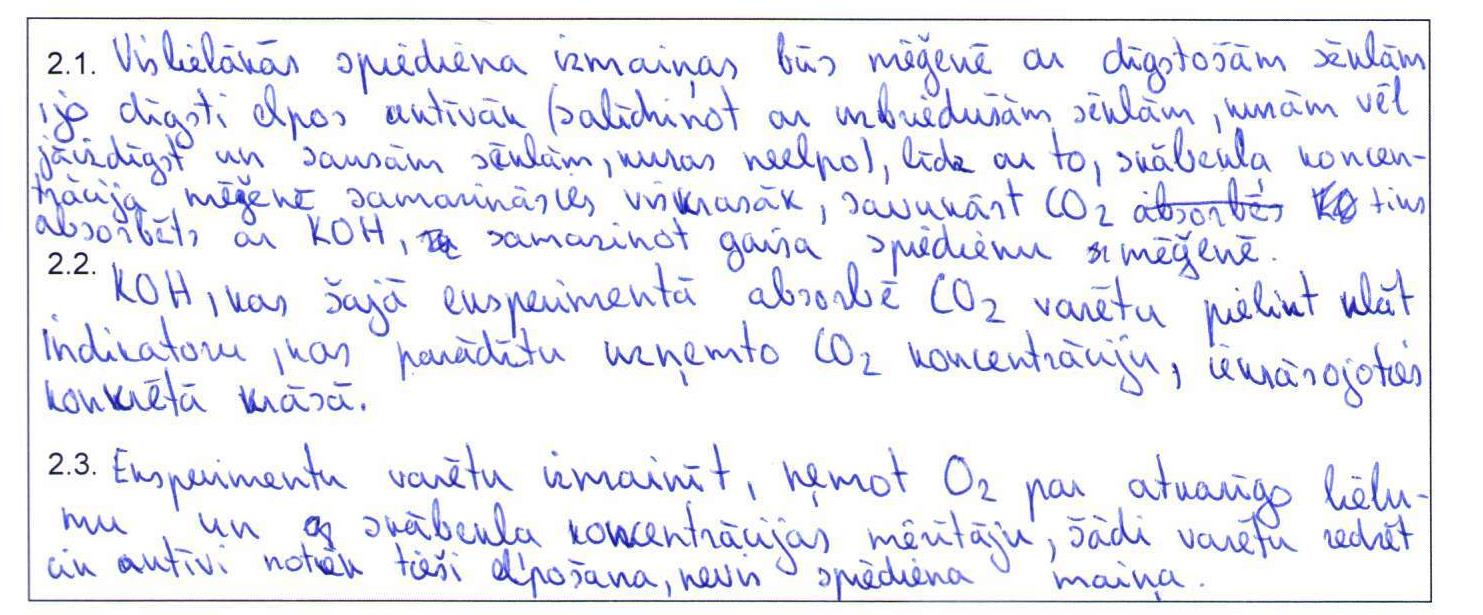 2.1. Vislielākās spiediena izmaiņas būs mēģenē ar dīgstošām sēklām
, jo dīgsti elpos aktīvāk (salīdzinot ar uzbriedušām sēklām, kurām vēl
jāizdīgst un sausām sēklām, kuras neelpo), līdz ar to, skābekļa koncen-
trācija mēģenē samazināsies viskrasāk, savukārt CO2 absorbēs tiks
absorbēts ar KOH, samazinot gaisa spiedienu mēģenē.
2.2. KOH, kas šajā eksperimentā absorbē CO2 varētu pielikt klāt
indikatoru, kas parādītu uzņemto CO2 koncentrāciju, iekrāsojoties
konkrētā krāsā.
2.3. Eksperimentu varētu izmainīt, ņemot O2 par atkarīgo lielu-
mu un skābekļa koncentrācijas mērītāju, šādi varētu redzēt
cik aktīvi notiek tieši elpošana, nevis spiediena maiņa.